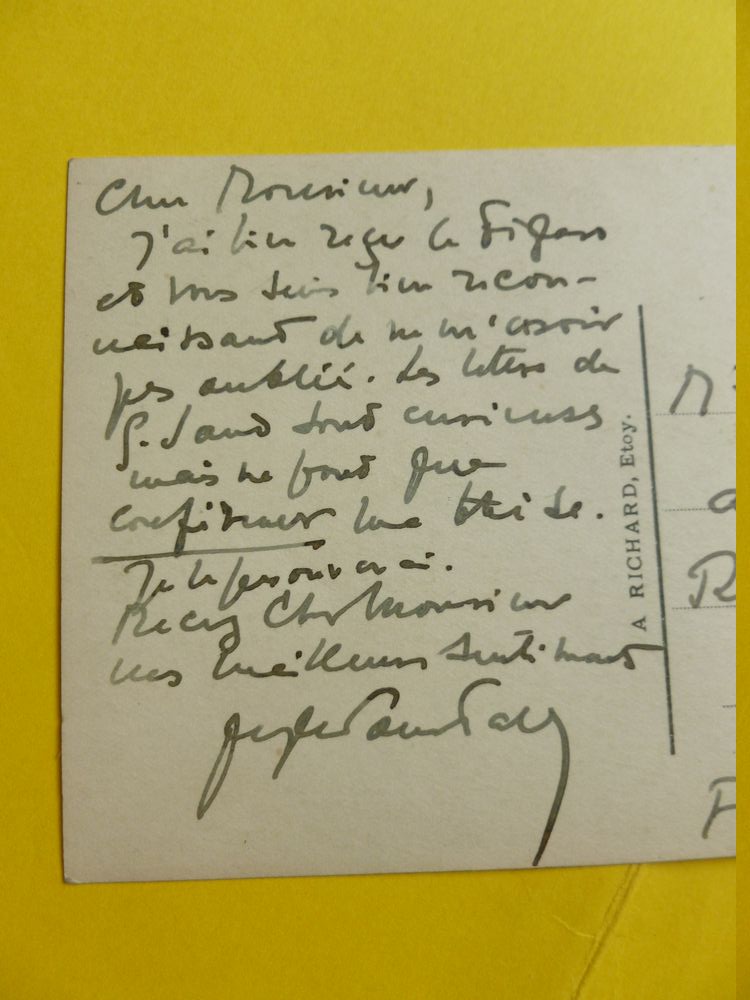 Cher Monsieur,
J'ai bien reçu le Figaro
et vous suis bien recon-
naissant de ne m'avoir
pas oublié. Les lettres de
G. Sand sont curieuses
mais ne font que
confirmer ma thèse.
Je le prouverai.
Recevez Cher Monsieur
mes meilleurs sentiments
A RICHARD, Etoy.
M
a
R
F